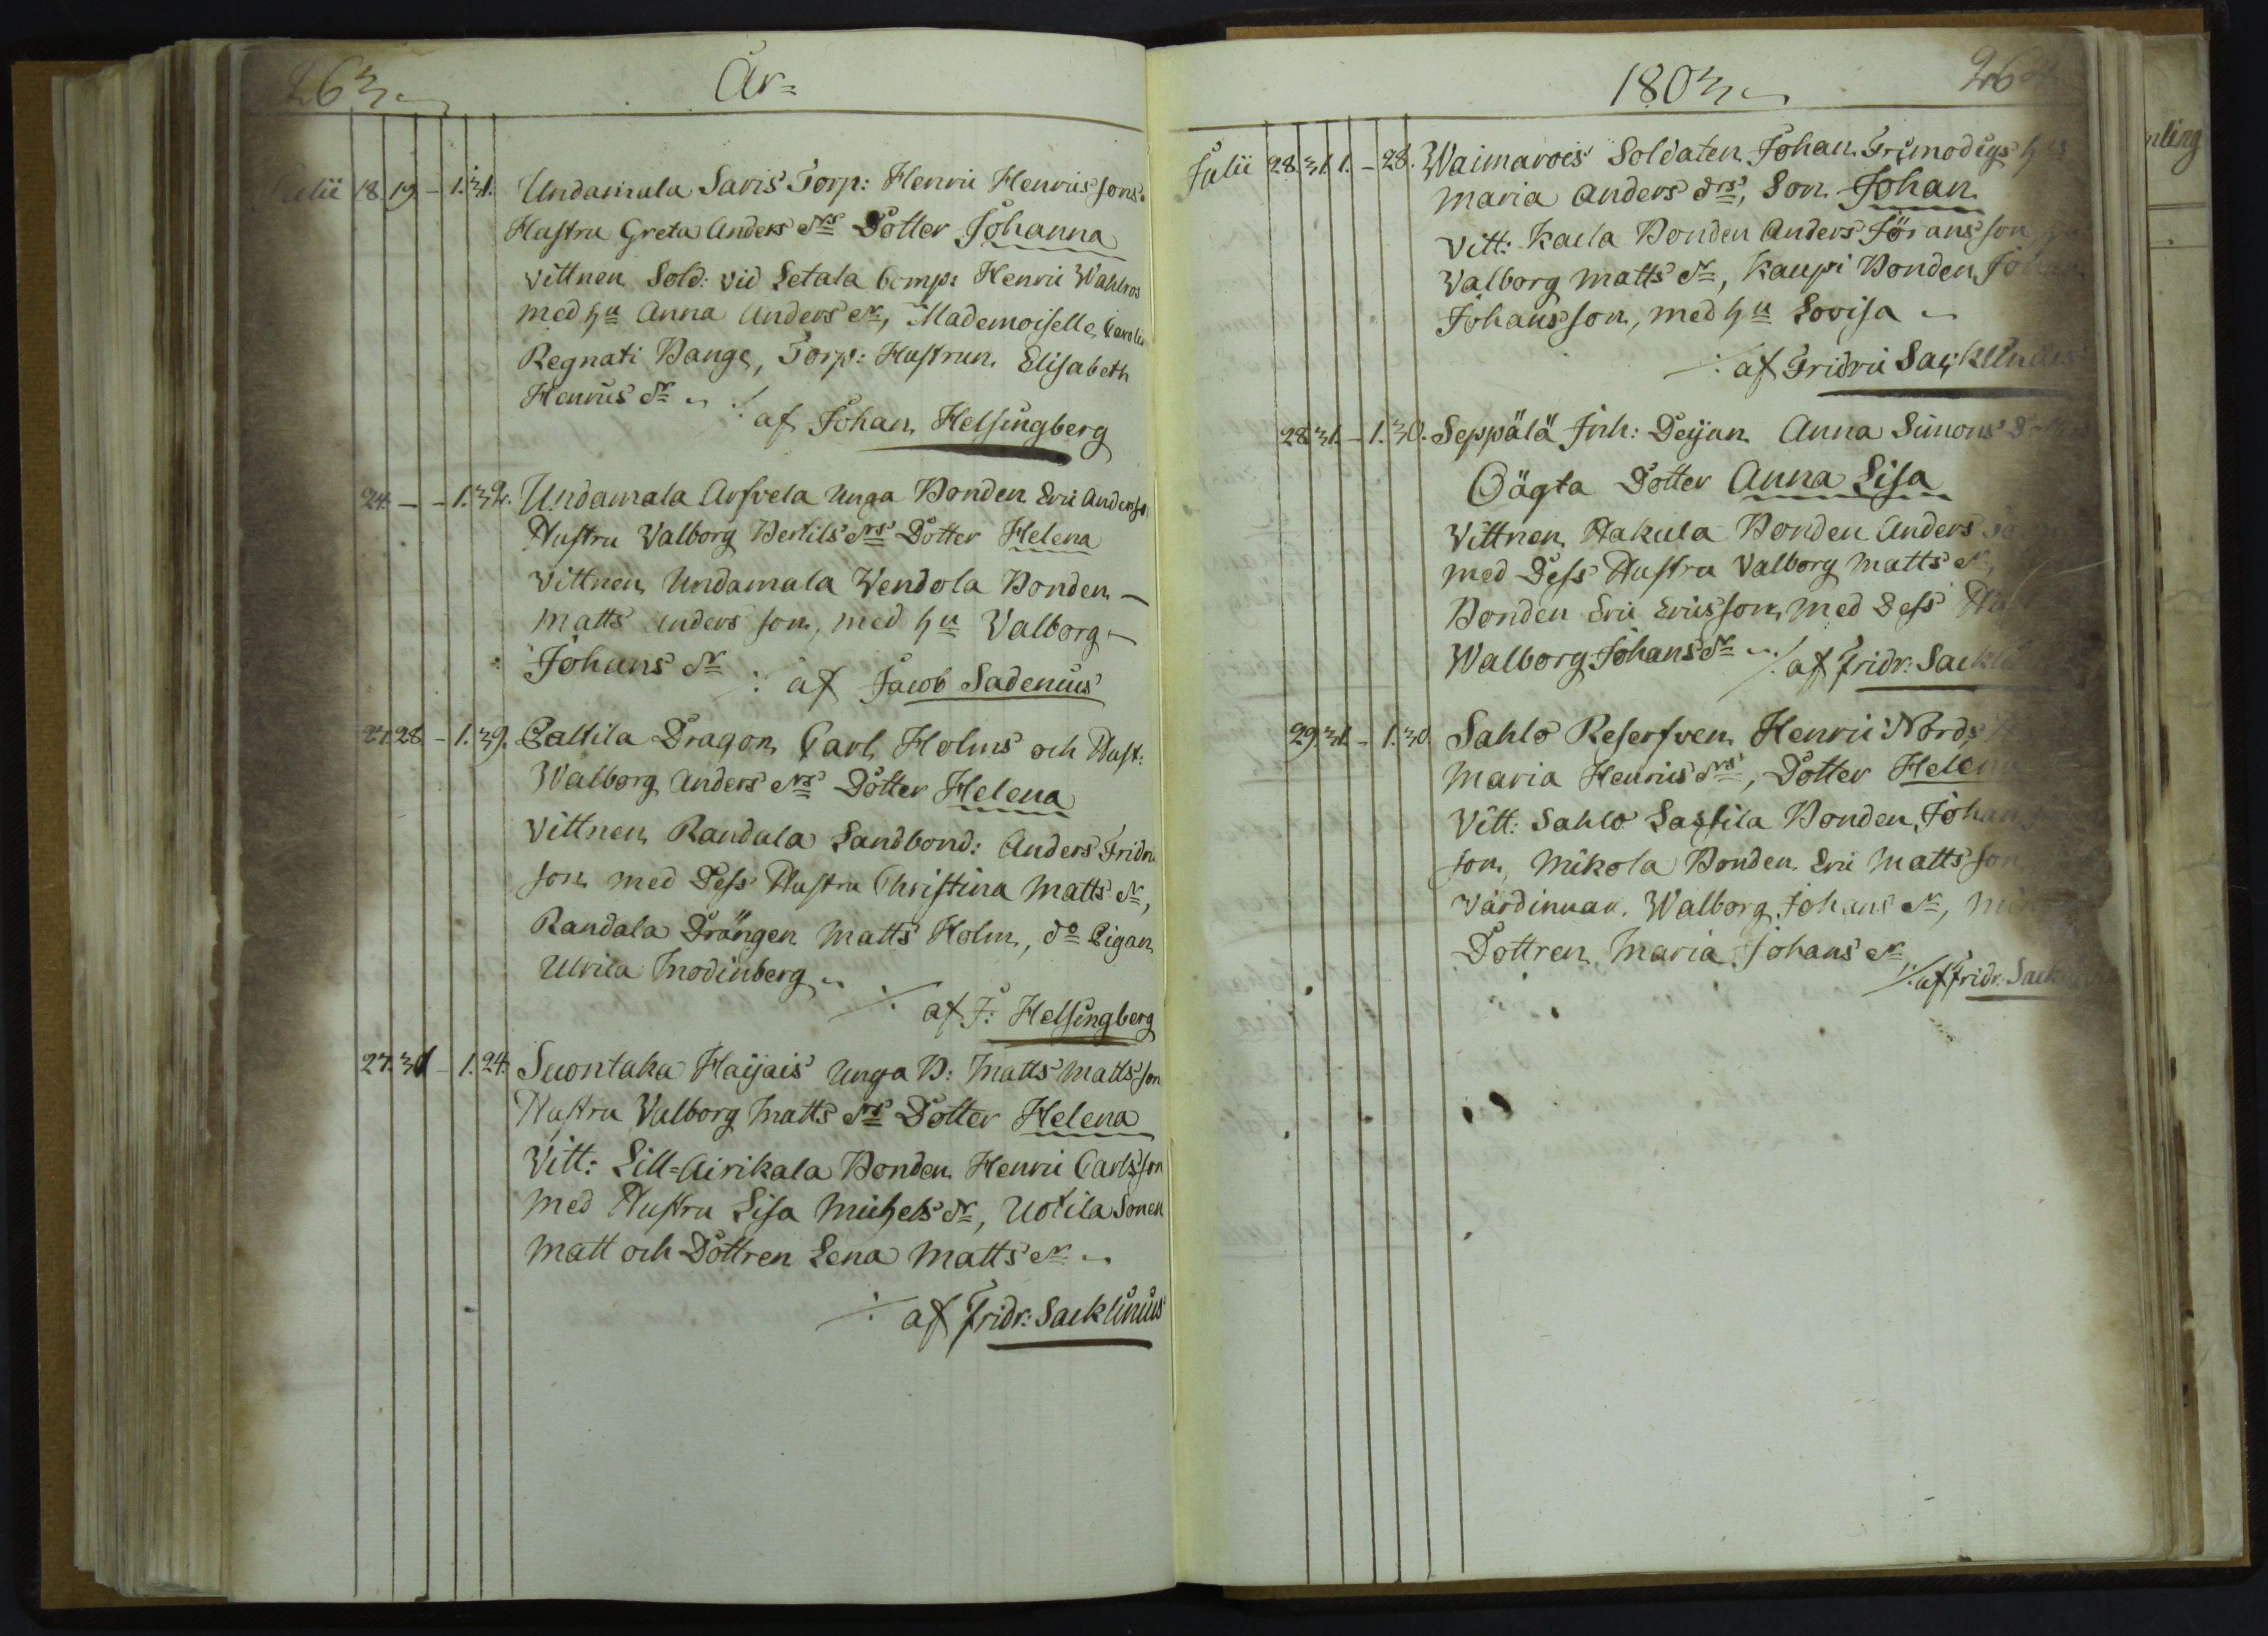 263
År=
Julii 18. 19 - 1. 31. Undamala Saris Torp: Henric Henrics sons
Hustru Greta Anders Drs Dotter Johanna
Vittnen Sold: vid Letala Comp: Henric Wahlros
med hu Anna Anders Dr, Mademoiselle
Regnati Bange, Torp: Hustrun Elisabeth
Henrics Dr ./. af Johan Helsingberg
24. - - 1. 32. Undamala Arfvela Unga Bonden Eric Anderss
Hustru Valborg Bertils Drs Dotter Helena
Vittnen Undamala Wendola Bonden
Matts Anders son, med hu Valborg
Johans Dr ./. af Jacob Sadenius
27. 28. - 1. 39. Caltila Dragon Carl Holms och Hust:
Walborg Anders Drs Dotter Helena
Vittnen Randala Landbond: Anders Fridric
son med Dess Hustru Christina Matts Dr,
Randala Drängen Matts Holm, do Pigan
Ulrica Modinberg
./. af J: Helsingberg
27. 31 - 1. 24. Suontaka Haijais Unga B: Matts Matts son
Hustru Valborg Matts Drs Dotter Helena
Vitt: Lill=Airikala Bonden Henric Carls son
med Hustru Lisa Michels Dr, Uotila Sonen
Matt och Dottren Lena Matts Dr
./. af Fridr: Sacklinius
1803
264
Julii 28. 31. 1. - 28. Waimarois Soldaten Johan Frimodigs hus
Maria Anders Drs, Son Johan
Vitt: Kaila Bonden Anders Jöransson
Valborg Matts Dr, Kaupi Bonden Johan
Johansson, med hu Lovisa
./. af Fridric Sacklinius
28. 31. - 1. 30. Seppälä Inh: Deijan Anna Simons
Oägta Dotter Anna Lisa
Vittnen Hakula Bonden Anders
med Dess Hustru Valborg Matts Dr,
Bonden Eric Ericsson med Dess
Walborg Johans Dr ./. af Fridr: Sackl
29. 31. - 1. 30. Sahlo Reserfven Henric Nords
Maria Henrics Drs, Dotter Helena
Vitt: Sahlo Lassila Bonden Johan
son, Mikola Bonden Eric Matts son,
Värdinnan Walborg Johans Dr,
Dottren Maria Johans Dr
./. af Fridr: Sack
nling